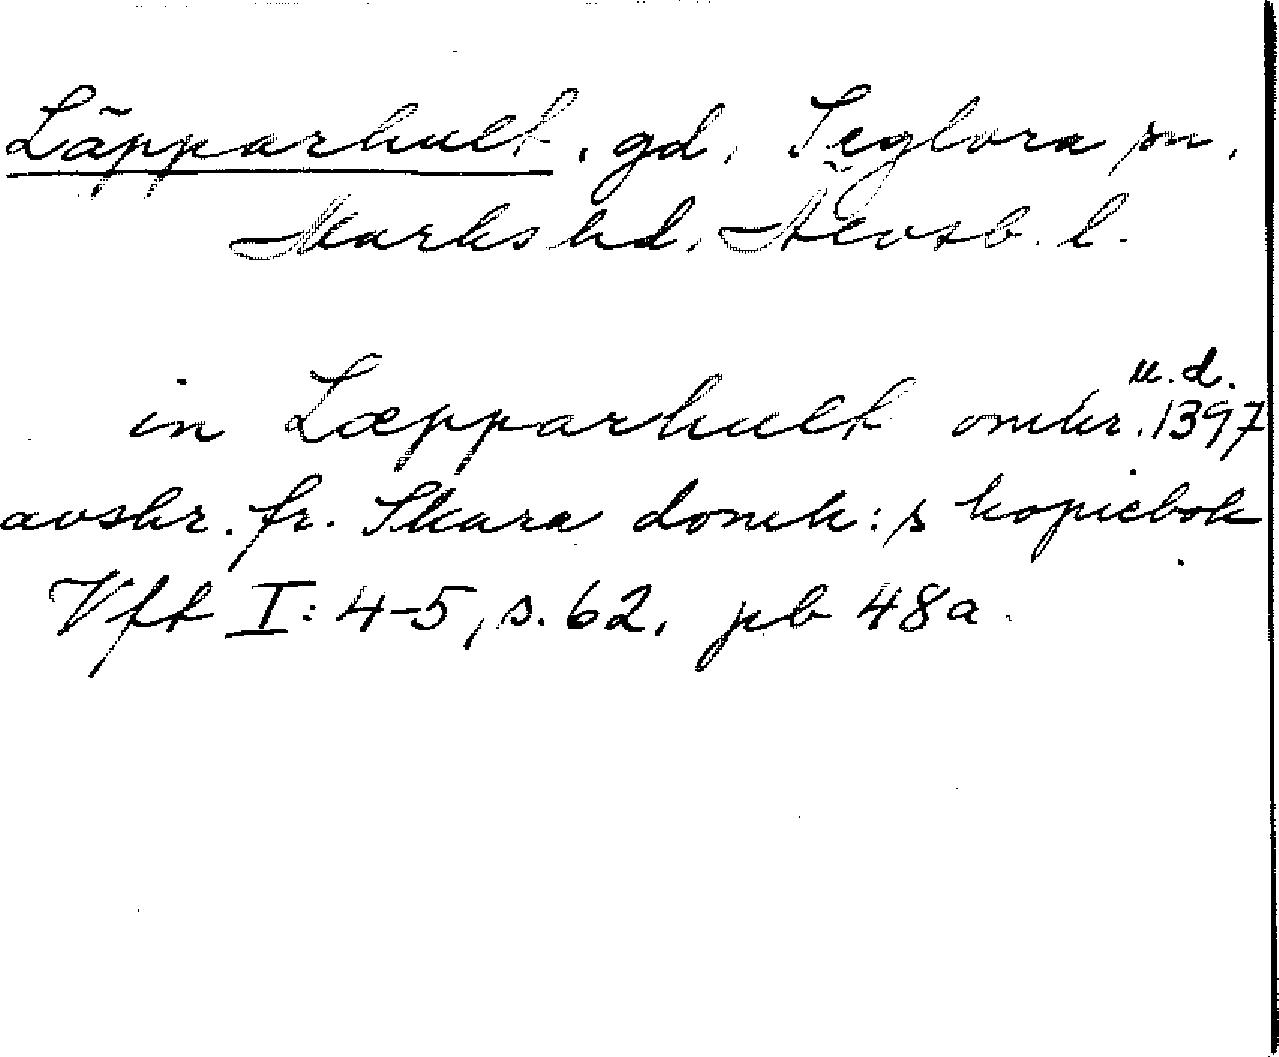 Läpparhult, gd, Seglora sn,
Marks hd. Älvsb. l.
in Læpparhult omkr. u.d. 1397
avskr. fr. Skara domk:s kopiebok
Vft I: 4-5, s. 62, pb 48a.